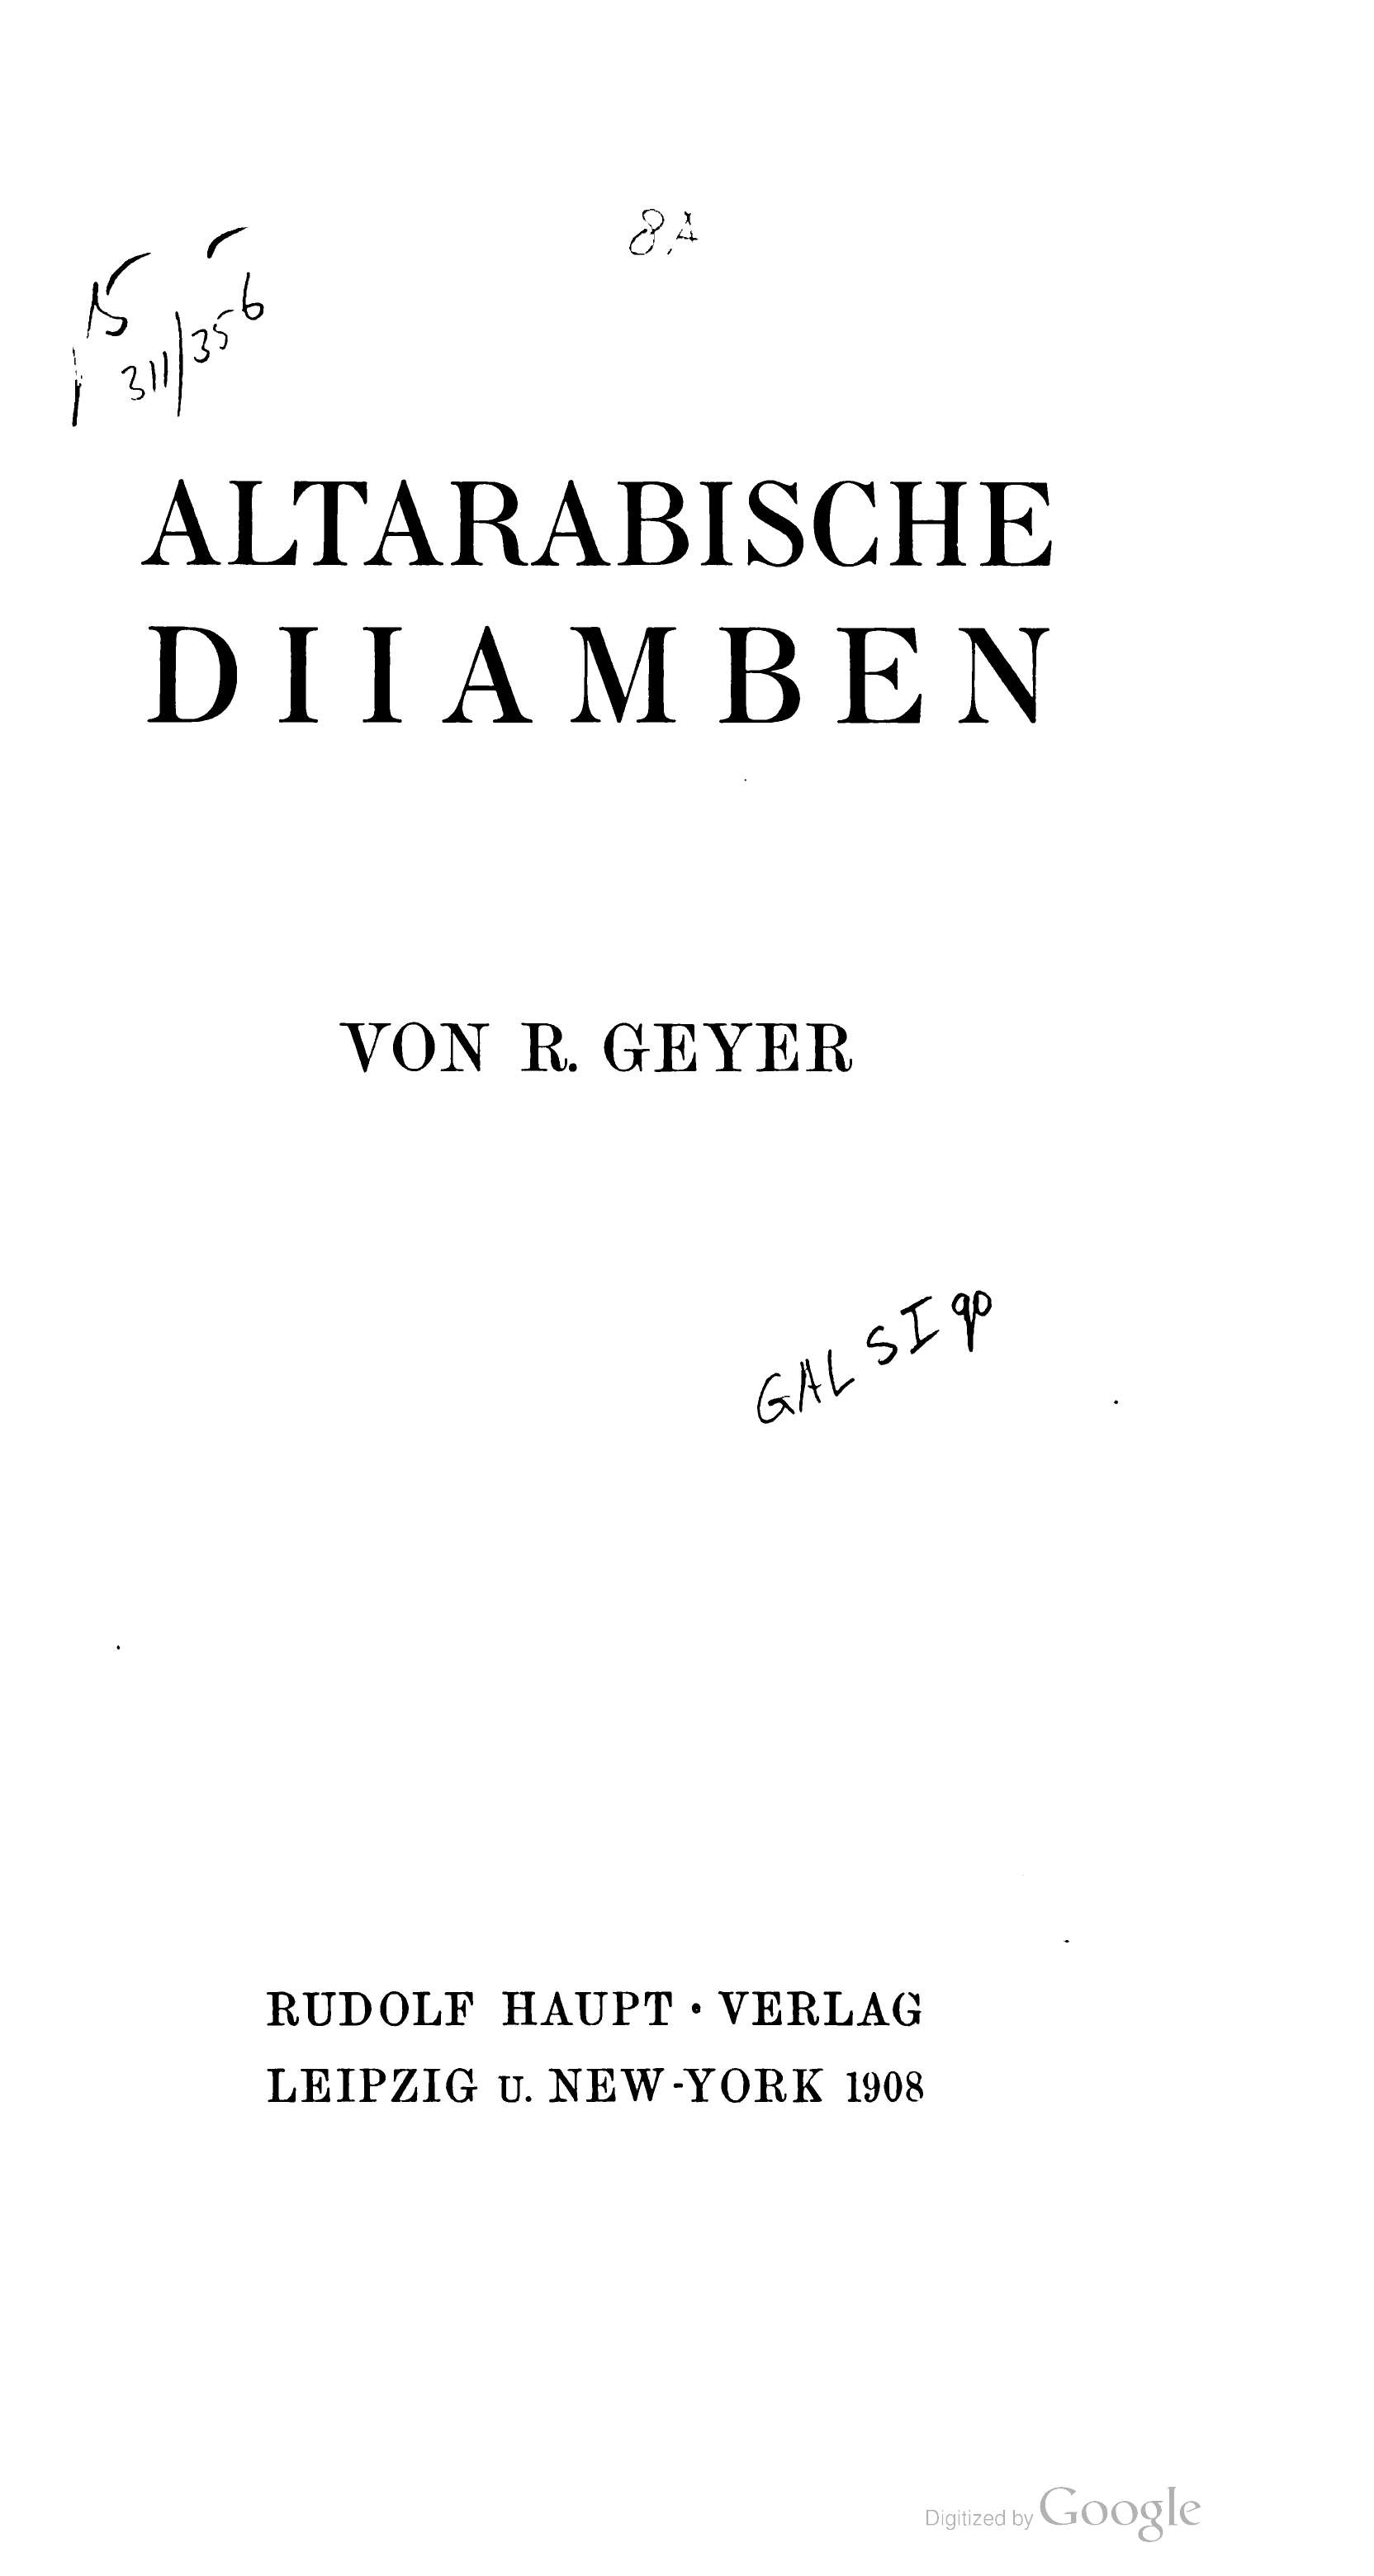 8,4
15
311/356
ALTARABISCHE
DIIAMBEN
VON R. GEYER
GAL SI 90
RUDOLF HAUPT · VERLAG
LEIPZIG U. NEW-YORK 1908
Digitized by Google